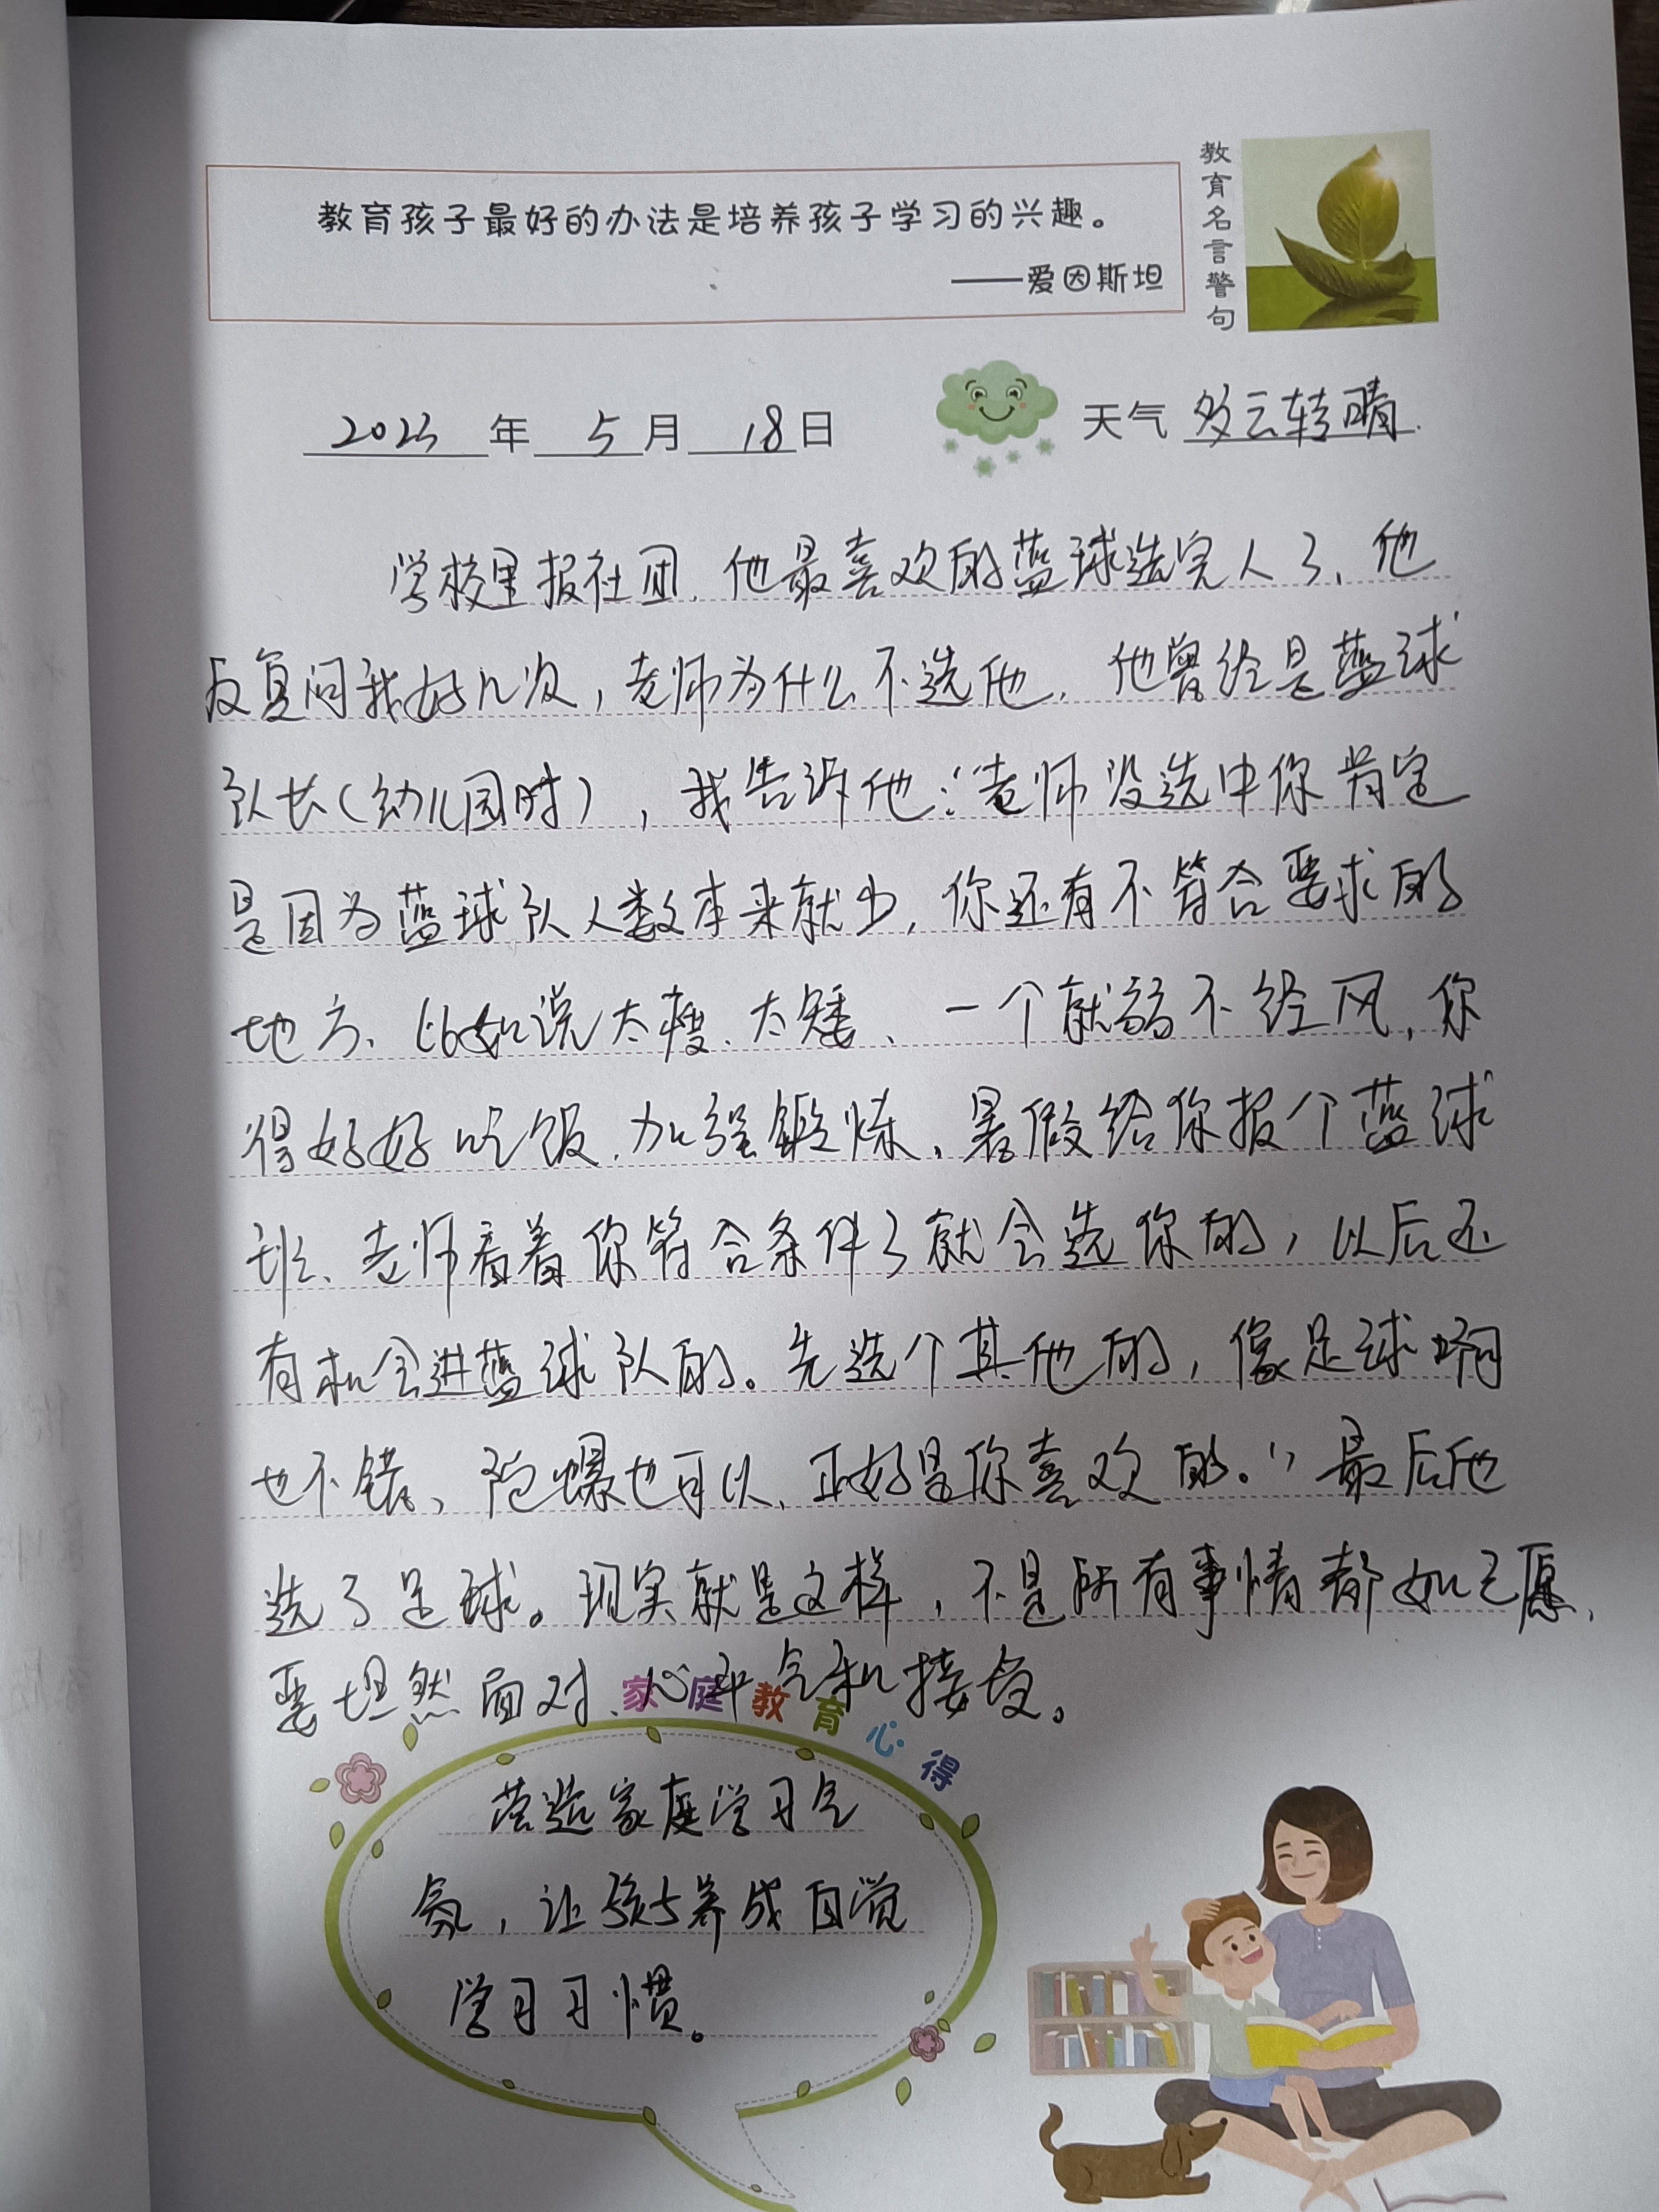 教育孩子最好的办法是培养孩子学习的兴趣。
——爱因斯坦
教育名言警句
2023年5月18日
天气 多云转晴.
学校里报社团,他最喜欢的蓝球选完人了、他
反复问我好几次,老师为什么不选他,他曾经是蓝球
队长(幼儿园时),我告诉他:“老师没选中你肯定
是因为蓝球队人数本来就少,你还有不符合要求的
地方、比如说太瘦、太矮、一个就弱不经风,你
得好好吃饭、加强锻炼、暑假给你报个蓝球
班、老师看着你符合条件了就会选你的,以后还
有机会进蓝球队的。先选个其他的,像足球啊
也不错、陀螺也可以、正好是你喜欢的。”最后他
选了足球。现实就是这样,不是所有事情都如己愿、
要坦然面对、心平气和接受。
家庭教育心得
营造家庭学习气
氛,让孩子养成自觉
学习习惯。